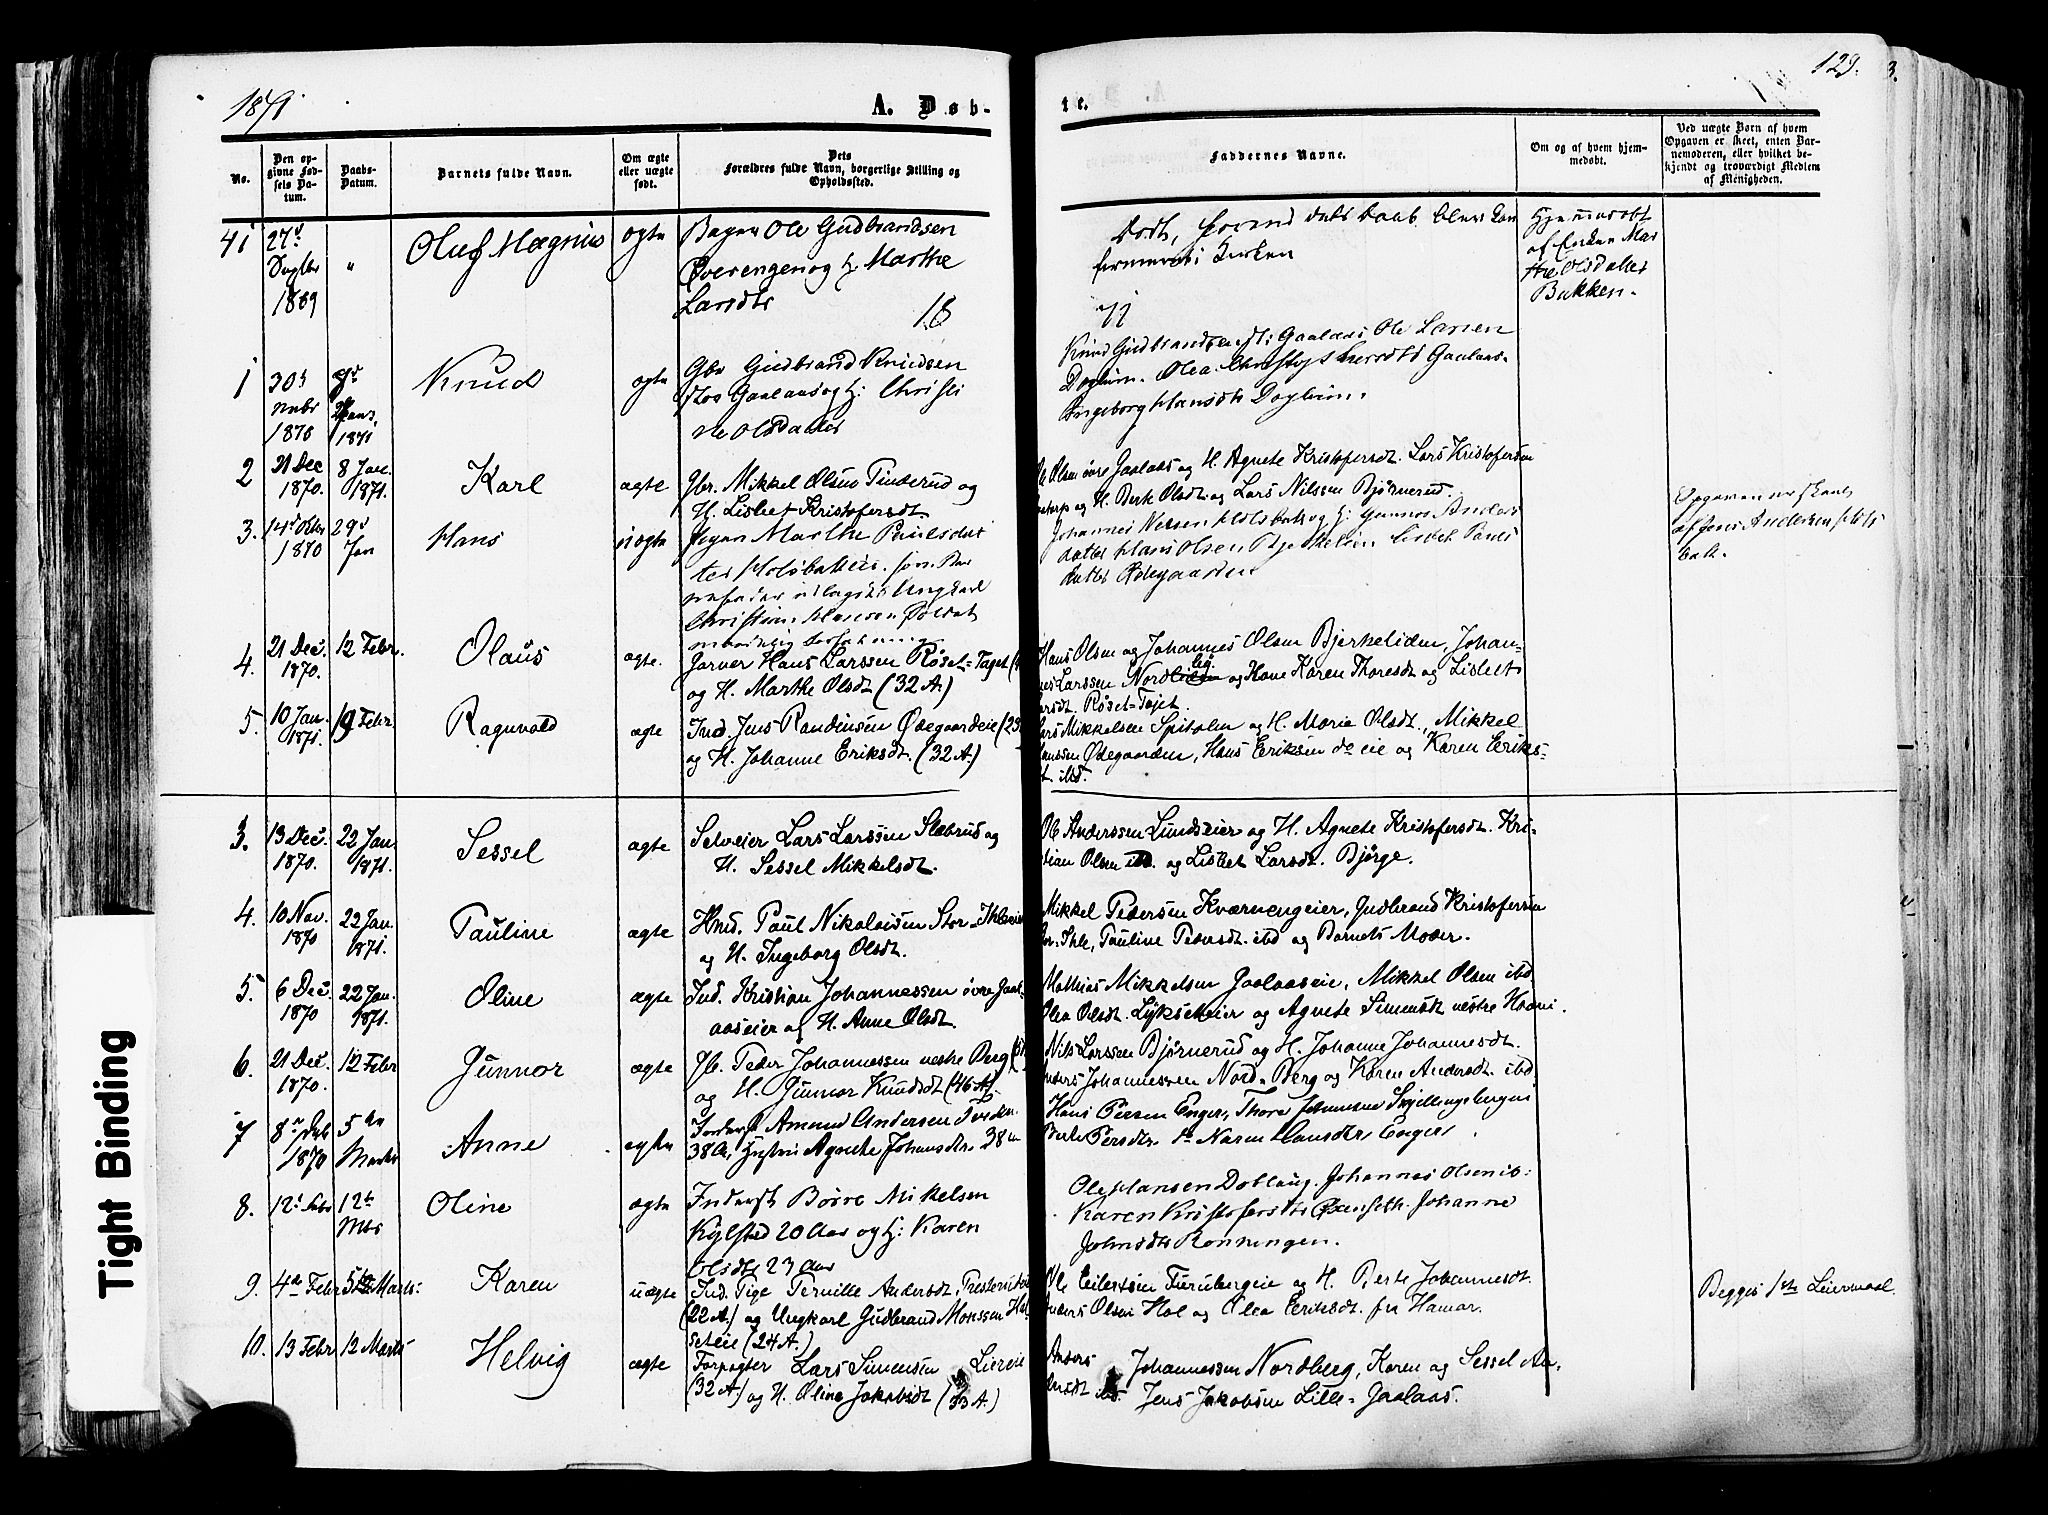 1871
A. Døb-
te.
129.
3.
No.
Den op-
givne Fød-
sels Da-
tum.
Daabs-
Datum.
Barnets fulde Navn.
Om ægte
eller uægte
født.
Dets
Forældres fulde Navn, borgerlige Stilling og
Opholdssted.
Faddernes Navne.
Om og af hvem hjem-
medøbt.
Ved uægte Børn af hvem
Opgaven er skeet, enten Bar-
nemoderen, eller hvilket be-
kjendt og troværdigt Medlem
af Menigheden.
41
27d
1869
"
Oluf Magnus
ægte
Ole Gudbrandsen
Øverengen og H. Marthe
Larsdtr
Død, forend dets Daab blev con
firmeret i Kirken
Hjemmedøbt
af Enken Mar
the Olsdatter
Bakken.
18
71
1
30d
Novbr
1870
1871
Knud
ægte
Gbr Gudbrand Knudsen
Gaalaas og H. Christi
ne Olsdatter
Knud Gudbrandsen Gaalaas Ole Larsen
Doglum. Olea Christophersdtr Gaalaas.
Ingeborg Hansdtr Doglum.
2
21 Dec
1870.
8 Jan.
1871.
Karl
ægte
Gbr. Mikkel Olsen Tinderud og
H. Lisbet Kristofersdt.
Olsen øvre Gaalaas og H. Agnete Kristofersdt. Lars Kristofersen
og H. Berte Olsdt. og Lars Nilssen Bjørnerud.
3.
14d Oktbr
1870
29d
Jan
Hans
uægte
Pigen Marthe Paulsdat
ter Holsbakken.
Ungkarl
Christian Hansen Soldat
Johannes Holsbak og H. Gunnor Anders
datter Hans Olsen Bjerkelien Lisbet Pauls
datter Ødegaarden
Opgaven er skeet
af Jens Andersen Hols
bak.
4.
21 Dec.
1870.
12 Febr.
Olaus
ægte.
Garver Hans Larssen Røset-Taget
og H. Marthe Olsdt (32 A.)
Hans Olsen og Johannes Olsen Bjerkeliden, Johan-
nes Larssen Nordlien og Kone Karen Thoresdt og Lisbet
Larsdt. Røset-Tajet.
5.
10 Jan.
1871.
19 Febr
Ragnvald
ægte
Ind. Jens Randinsen Ødegaardeie (23
og H. Johanne Eriksdt. (32 A.)
Lars Mikkelsen Spitalen og H. Marie Olsdt., Mikkel
Hanssen Ødegaarden, Hans Eriksen do eie og Karen Eriks-
dt. ibd.
3.
13 Dec.
1870.
22 Jan.
1871.
Sessel
ægte
Selveier Lars Larssen Slæbrud og
H. Sessel Mikkelsdt.
Ole Anderssen Lundseier og H. Agnete Kristofersdt. Kri-
stian Olsen ibd. og Lisbet Larsdt. Bjørge.
4.
10 Nov.
1870
22 Jan.
1871.
Pauline
ægte
Hmd. Paul Nikolaisen Stor-Ihleeie
og H. Ingeborg Olsdt.
Mikkel Pedersen Kværnengeier, Gudbrand Kristofersen
Stor-Ihle, Pauline Pedersdt. ibd og Barnets Moder.
5.
6 Dec
1870
22 Jan.
1871.
Oline
ægte
Ind. Kristian Johannessen øvre Gaal-
aaseier og H. Anne Olsdt.
Mathias Mikkelsen Gaalaaseie, Mikkel Olsen ibd
Olea Olsdt. Lykseteier og Agnete Simensdt nestre Hom
6.
21 Dec.
1870.
12 Febr
Gunnor
ægte
Gb. Peder Johannessen nestre Berg
og H. Gunnor Knudsdt (46 A.)
Nils Larssen Bjørnerud og H. Johanne Johannesdt.
Anders Johannessen Nord-Berg og Karen Andersdt. ibd
7
8de
1870
5te
Marts
Anne
ægte
Inderst Amund Andersen
38 A., Hustru Agnete Johansdtr. 38 a
Hans Persen Enger, Thore Johannesen Skjellingsbergeie
Berte Persdtr. Hansdtr Enger
8.
12te Febr
12te
Mts
Oline
ægte
Inderst Børre Mikelsen
Kylsted 20 Aar og H: Karen
Olsdtr 23 Aar
Ole Hansen Doblaug. Johannes Olsen ib:
Karen Kristofersdtr Johanne
Johnsdtr Rønningen.
9.
4de Febr
5te Marts:
Karen
uægte
Ind. Pige Pernille Andersdt. Presterudeie
(22 A.) og Ungkarl Gudbrand Monssen Hol
seteie (24 A.)
Ole Eilertsen Furubergeie og H. Berte Johannesdt.
Anders Olsen Hol og Olea Eriksdt. fra Hamar.
Begges 1ste Leiermaal.
10.
13 Febr
12 Marts
Helvig
ægte
Forpagter Lars Simensen Liereie
(32 A.) og H. Oline Jakobsdt (33 A.)
Anders Johannessen Nordberg, Karen og Sessel An-
dersdt ibd. Jens Jakobsen Lille-Gaalaas.
Tight Binding